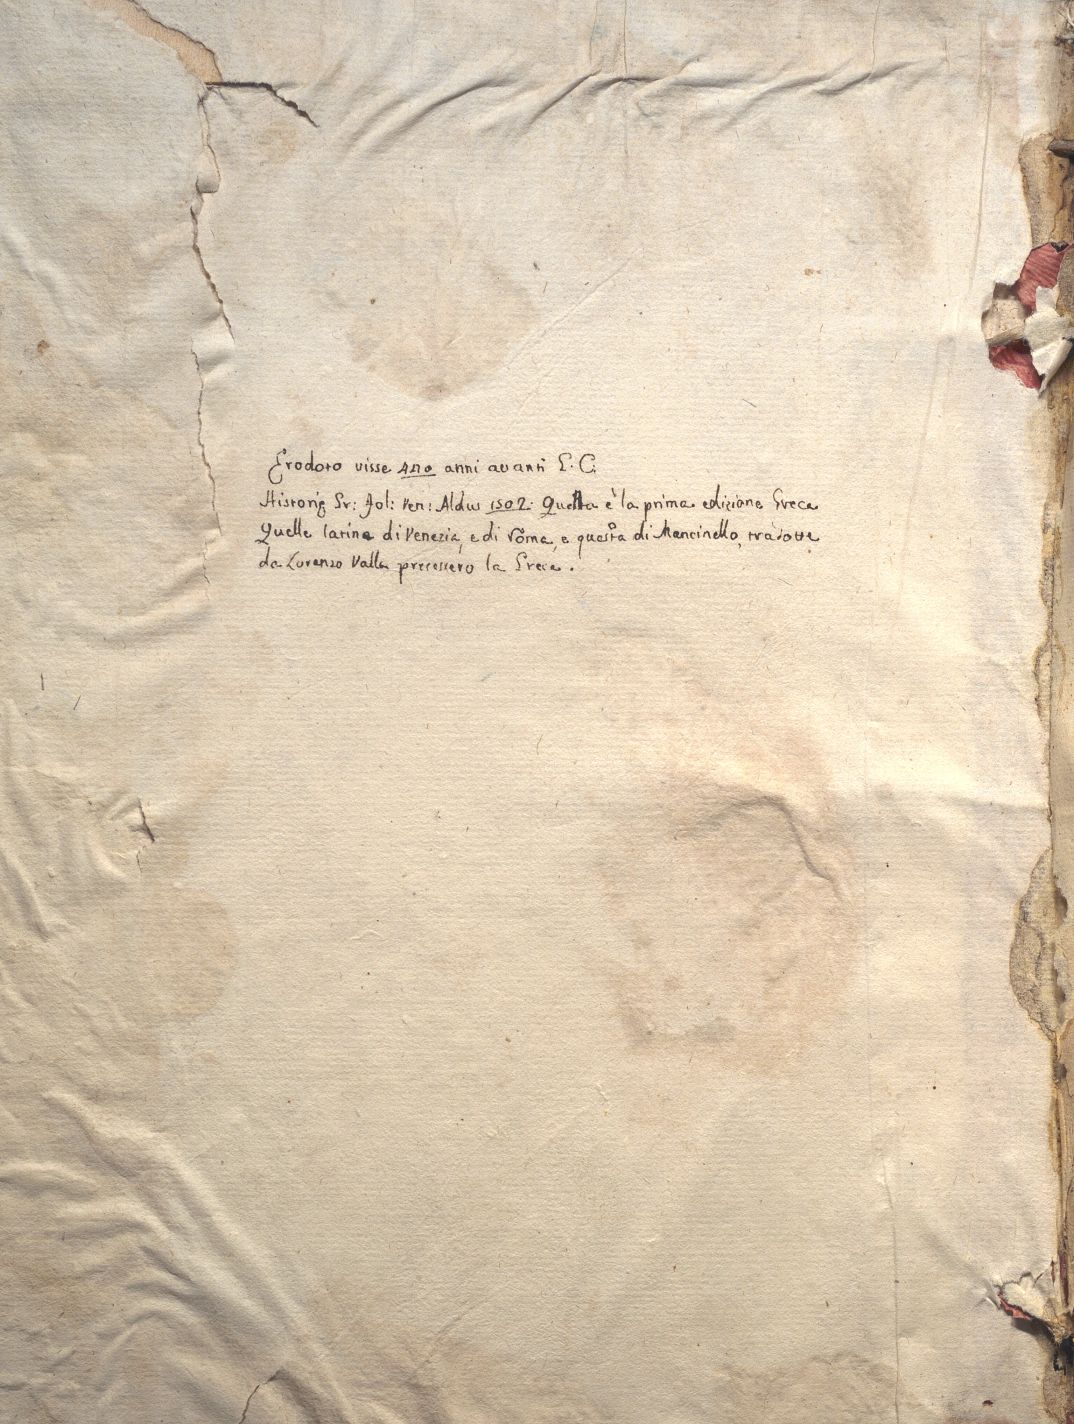 Erodoto visse 420 anni avanti G. C.
Historiȩ Gr: fol: Ven: Aldus 1502. Quella è la prima edizione Greca
Quelle latine di Venezia, e di Roma, e questa di Mancinello, tradotte
da Lorenzo Valla precessero la Greca.